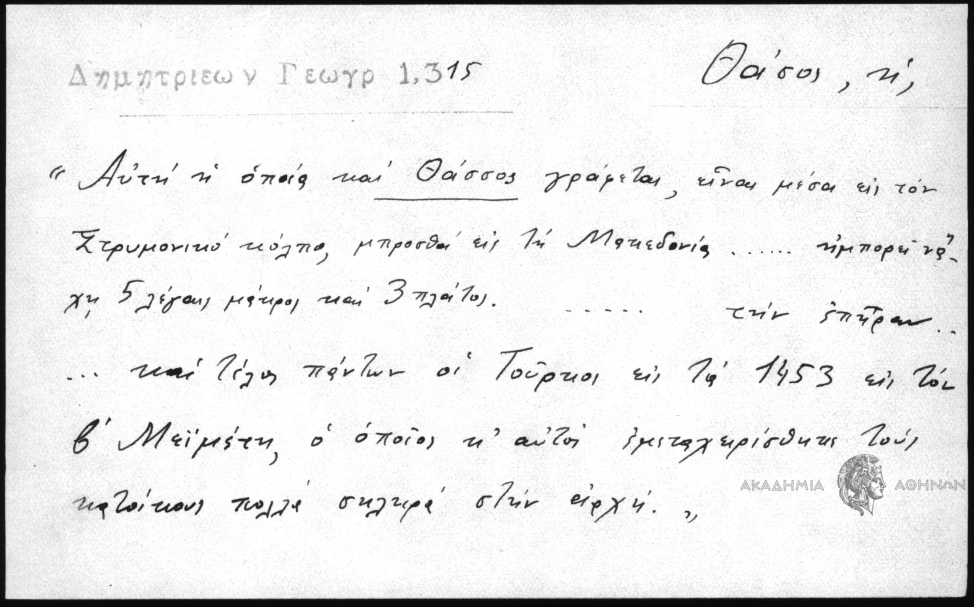 Δημητριεων Γεωγρ 1,315
Θάσος, ἡ,
"Αὐτή ἡ ὁποία καί Θάσσος γράφεται, εἶναι μέσα εἰς τόν
Στρυμονικό κόλπο, μπροσθά εἰς τή Μακεδονία ...... ἠμπορεῖ νἄ-
χῃ 5 λέγαις μάκρος καί 3 πλάτος. ..... τήν ἐπῆραν ..
... καί τέλος πάντων οἱ Τοῦρκοι εἰς τά 1453 εἰς τόν
β' Μεϊμέτη, ὁ ὁποῖος κ' αὐτός ἐμεταχειρίσθηκε τούς
κατοίκους πολλά σκληρά στήν ἀρχή."
ΑΚΑΔΗΜΙΑ ΑΘΗΝΩΝ